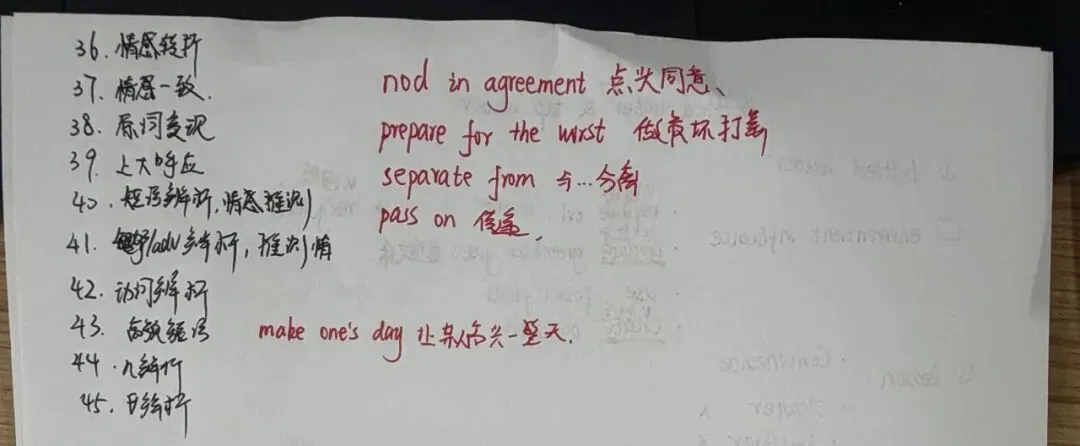 36. 情感转折
37. 情感一致.
38. 原词复现
39. 上下呼应
40. 短语辨析,情感推测
41. adv辨析,推测情
42. 动词辨析
43. 高频短语
44. n辨析
45. 辨析
nod in agreement 点头同意、
prepare for the worst 做最坏打算
separate from 与...分离
pass on 传递.
make one's day 让某人高兴一整天.